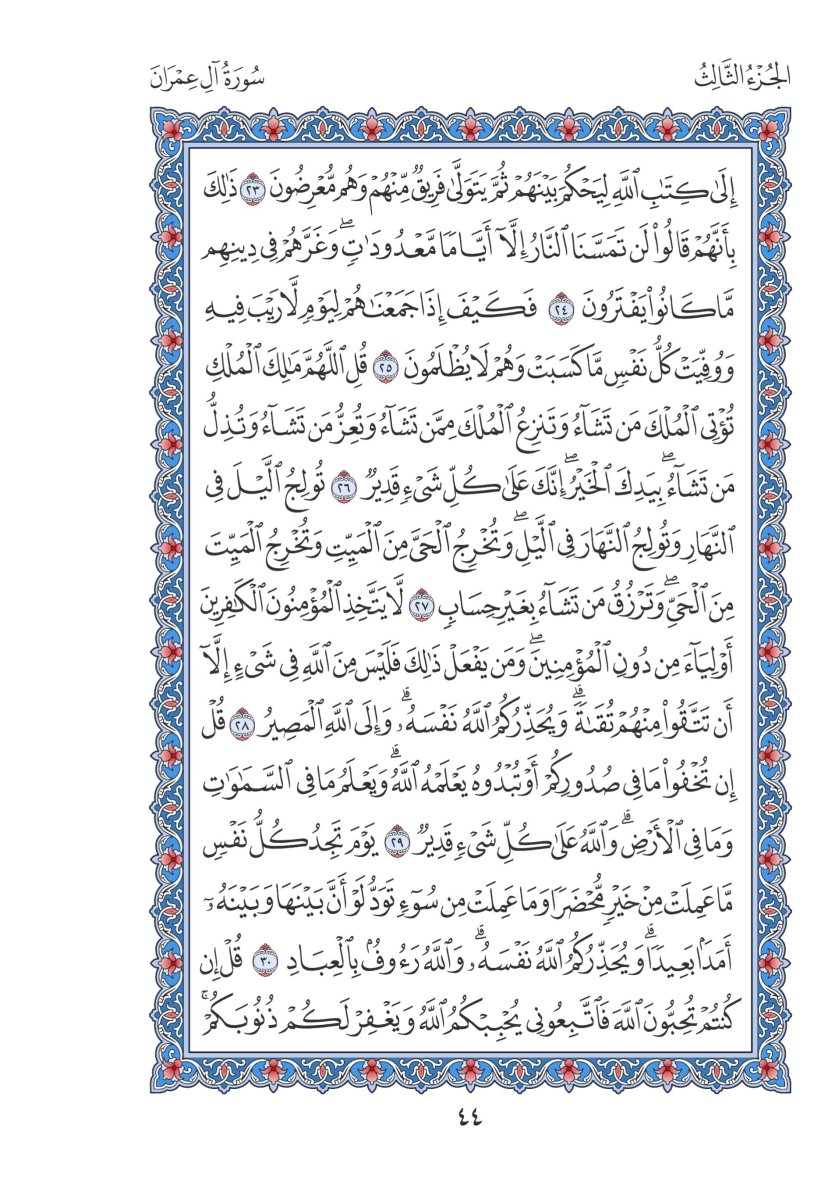 الجُزْءُ الثَّالِثُ
سُورَةُ آلِ عِمْرَانَ
إِلَىٰ كِتَٰبِ ٱللَّهِ لِيَحۡكُمَ بَيۡنَهُمۡ ثُمَّ يَتَوَلَّىٰ فَرِيقٞ مِّنۡهُمۡ وَهُم مُّعۡرِضُونَ ٢٣ ذَٰلِكَ
بِأَنَّهُمۡ قَالُواْ لَن تَمَسَّنَا ٱلنَّارُ إِلَّآ أَيَّامٗا مَّعۡدُودَٰتٖۖ وَغَرَّهُمۡ فِي دِينِهِم
مَّا كَانُواْ يَفۡتَرُونَ ٢٤ فَكَيۡفَ إِذَا جَمَعۡنَٰهُمۡ لِيَوۡمٖ لَّا رَيۡبَ فِيهِ
وَوُفِّيَتۡ كُلُّ نَفۡسٖ مَّا كَسَبَتۡ وَهُمۡ لَا يُظۡلَمُونَ ٢٥ قُلِ ٱللَّهُمَّ مَٰلِكَ ٱلۡمُلۡكِ
تُؤۡتِي ٱلۡمُلۡكَ مَن تَشَآءُ وَتَنزِعُ ٱلۡمُلۡكَ مِمَّن تَشَآءُ وَتُعِزُّ مَن تَشَآءُ وَتُذِلُّ
مَن تَشَآءُۖ بِيَدِكَ ٱلۡخَيۡرُۖ إِنَّكَ عَلَىٰ كُلِّ شَيۡءٖ قَدِيرٞ ٢٦ تُولِجُ ٱلَّيۡلَ فِي
ٱلنَّهَارِ وَتُولِجُ ٱلنَّهَارَ فِي ٱلَّيۡلِۖ وَتُخۡرِجُ ٱلۡحَيَّ مِنَ ٱلۡمَيِّتِ وَتُخۡرِجُ ٱلۡمَيِّتَ
مِنَ ٱلۡحَيِّۖ وَتَرۡزُقُ مَن تَشَآءُ بِغَيۡرِ حِسَابٖ ٢٧ لَّا يَتَّخِذِ ٱلۡمُؤۡمِنُونَ ٱلۡكَٰفِرِينَ
أَوۡلِيَآءَ مِن دُونِ ٱلۡمُؤۡمِنِينَۖ وَمَن يَفۡعَلۡ ذَٰلِكَ فَلَيۡسَ مِنَ ٱللَّهِ فِي شَيۡءٍ إِلَّآ
أَن تَتَّقُواْ مِنۡهُمۡ تُقَىٰةٗۗ وَيُحَذِّرُكُمُ ٱللَّهُ نَفۡسَهُۥۗ وَإِلَى ٱللَّهِ ٱلۡمَصِيرُ ٢٨ قُلۡ
إِن تُخۡفُواْ مَا فِي صُدُورِكُمۡ أَوۡ تُبۡدُوهُ يَعۡلَمۡهُ ٱللَّهُۗ وَيَعۡلَمُ مَا فِي ٱلسَّمَٰوَٰتِ
وَمَا فِي ٱلۡأَرۡضِۗ وَٱللَّهُ عَلَىٰ كُلِّ شَيۡءٖ قَدِيرٞ ٢٩ يَوۡمَ تَجِدُ كُلُّ نَفۡسٖ
مَّا عَمِلَتۡ مِنۡ خَيۡرٖ مُّحۡضَرٗا وَمَا عَمِلَتۡ مِن سُوٓءٖ تَوَدُّ لَوۡ أَنَّ بَيۡنَهَا وَبَيۡنَهُۥٓ
أَمَدَۢا بَعِيدٗاۗ وَيُحَذِّرُكُمُ ٱللَّهُ نَفۡسَهُۥۗ وَٱللَّهُ رَءُوفُۢ بِٱلۡعِبَادِ ٣٠ قُلۡ إِن
كُنتُمۡ تُحِبُّونَ ٱللَّهَ فَٱتَّبِعُونِي يُحۡبِبۡكُمُ ٱللَّهُ وَيَغۡفِرۡ لَكُمۡ ذُنُوبَكُمۡۚ
٤٤